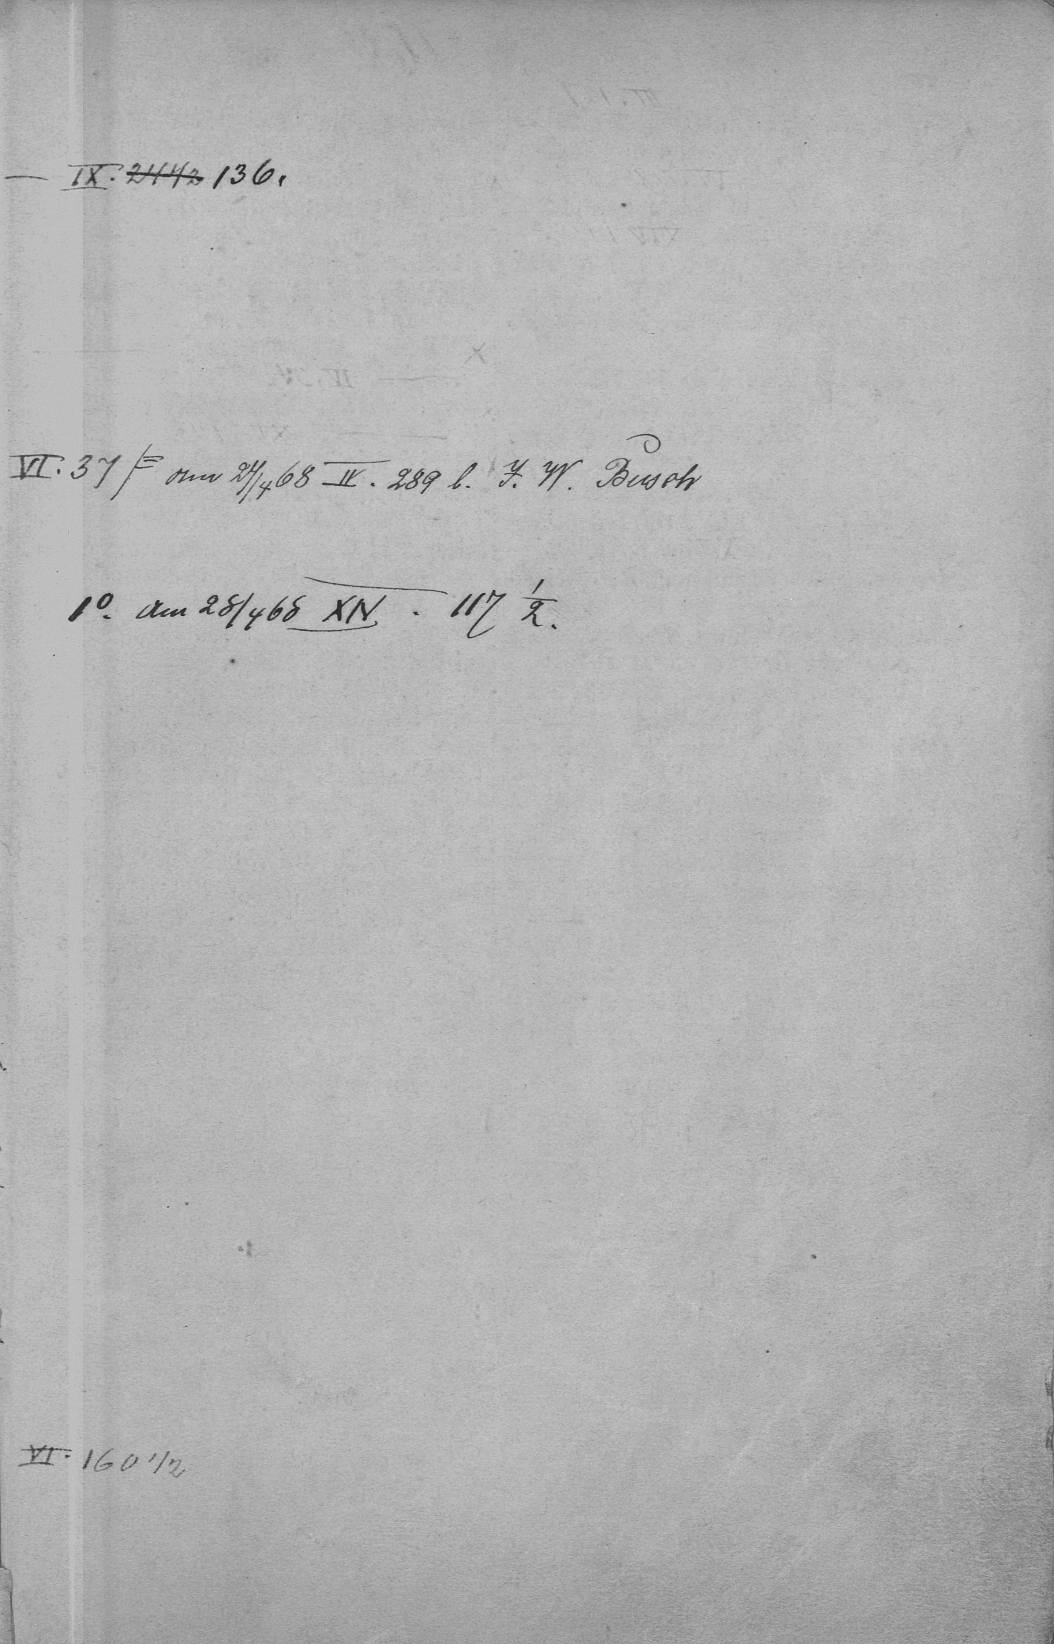 — IX. 136.
VI. 37 am 24/4 68 IV. 289 b. F. W. Busch
1º. am 28/4 68 XIV. 117 1/2.
VI. 160 1/2